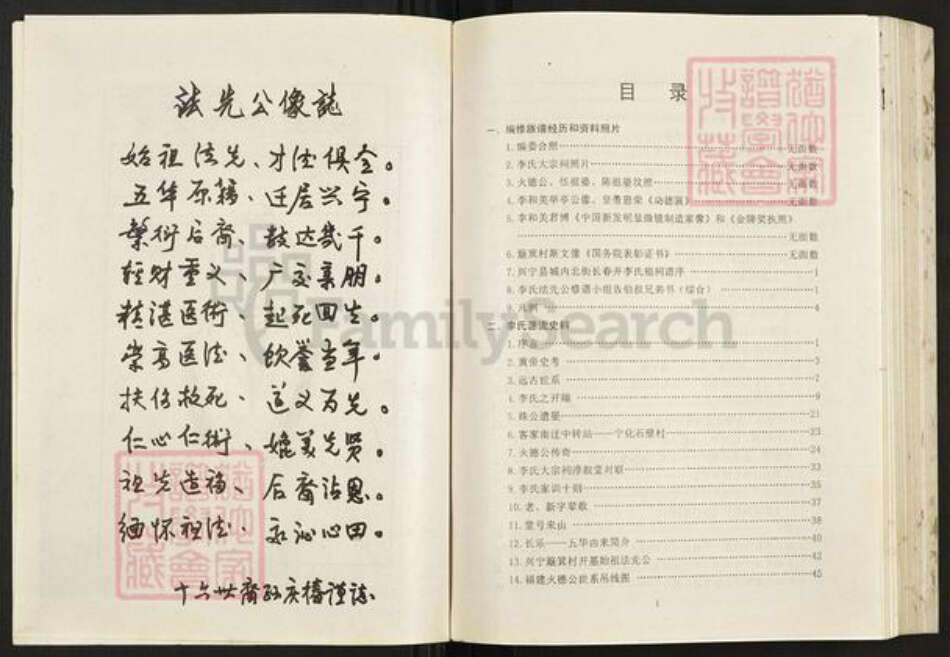 法先公像誌
始祖法先、才法俱全。
五华原籍、迁居兴宁。
繁衍后裔、数达几千。
轻财重义、广交亲朋。
精湛医術、起死回生。
崇高医法、饮誉当年。
扶伤救死、道义为先。
仁心仁術、媲美先贤。
祖先造福、后裔沾恩。
缅怀祖法、永沁心田。
十六世裔孙庆椿谨誌
目 录
一、编修族谱经历和资料照片
1.编委合照 无面数
2.李氏大宗祠照片 无面数
3.火德公、伍祖婆、陈祖婆坟照 无面数
4.李和美举亭公像、皇勇恩荣《动德 无面数
5.李和美君博《中国新发明显微镜制造家像》和《金陵奖执照》
无面数
6.簸箕村斯文像《国务院表彰证书》 无面数
7.兴宁县城内北街长春井李氏福祠谱序 1
8.李氏法先公修谱小组告伯叔兄弟书(综合) 1
9.凡例 4
二、李氏源流史料
1.序言 1
2.黄帝史考 3
3.远古世系 2
4.李氏之开端 9
5.珠公遗晏 21
6.客家南迁中转站——宁化石壁村 23
7.火德公传奇 24
8.李氏大宗祠淳叙堂对联 33
9.李氏家训十则 35
10.老、新字辈歌 37
11.堂号来由 38
12.长乐——五华由来简介 40
13.兴宁簸箕村开基始祖法先公 42
14.福建火德公世系吊线图 45
1
FamilySearch